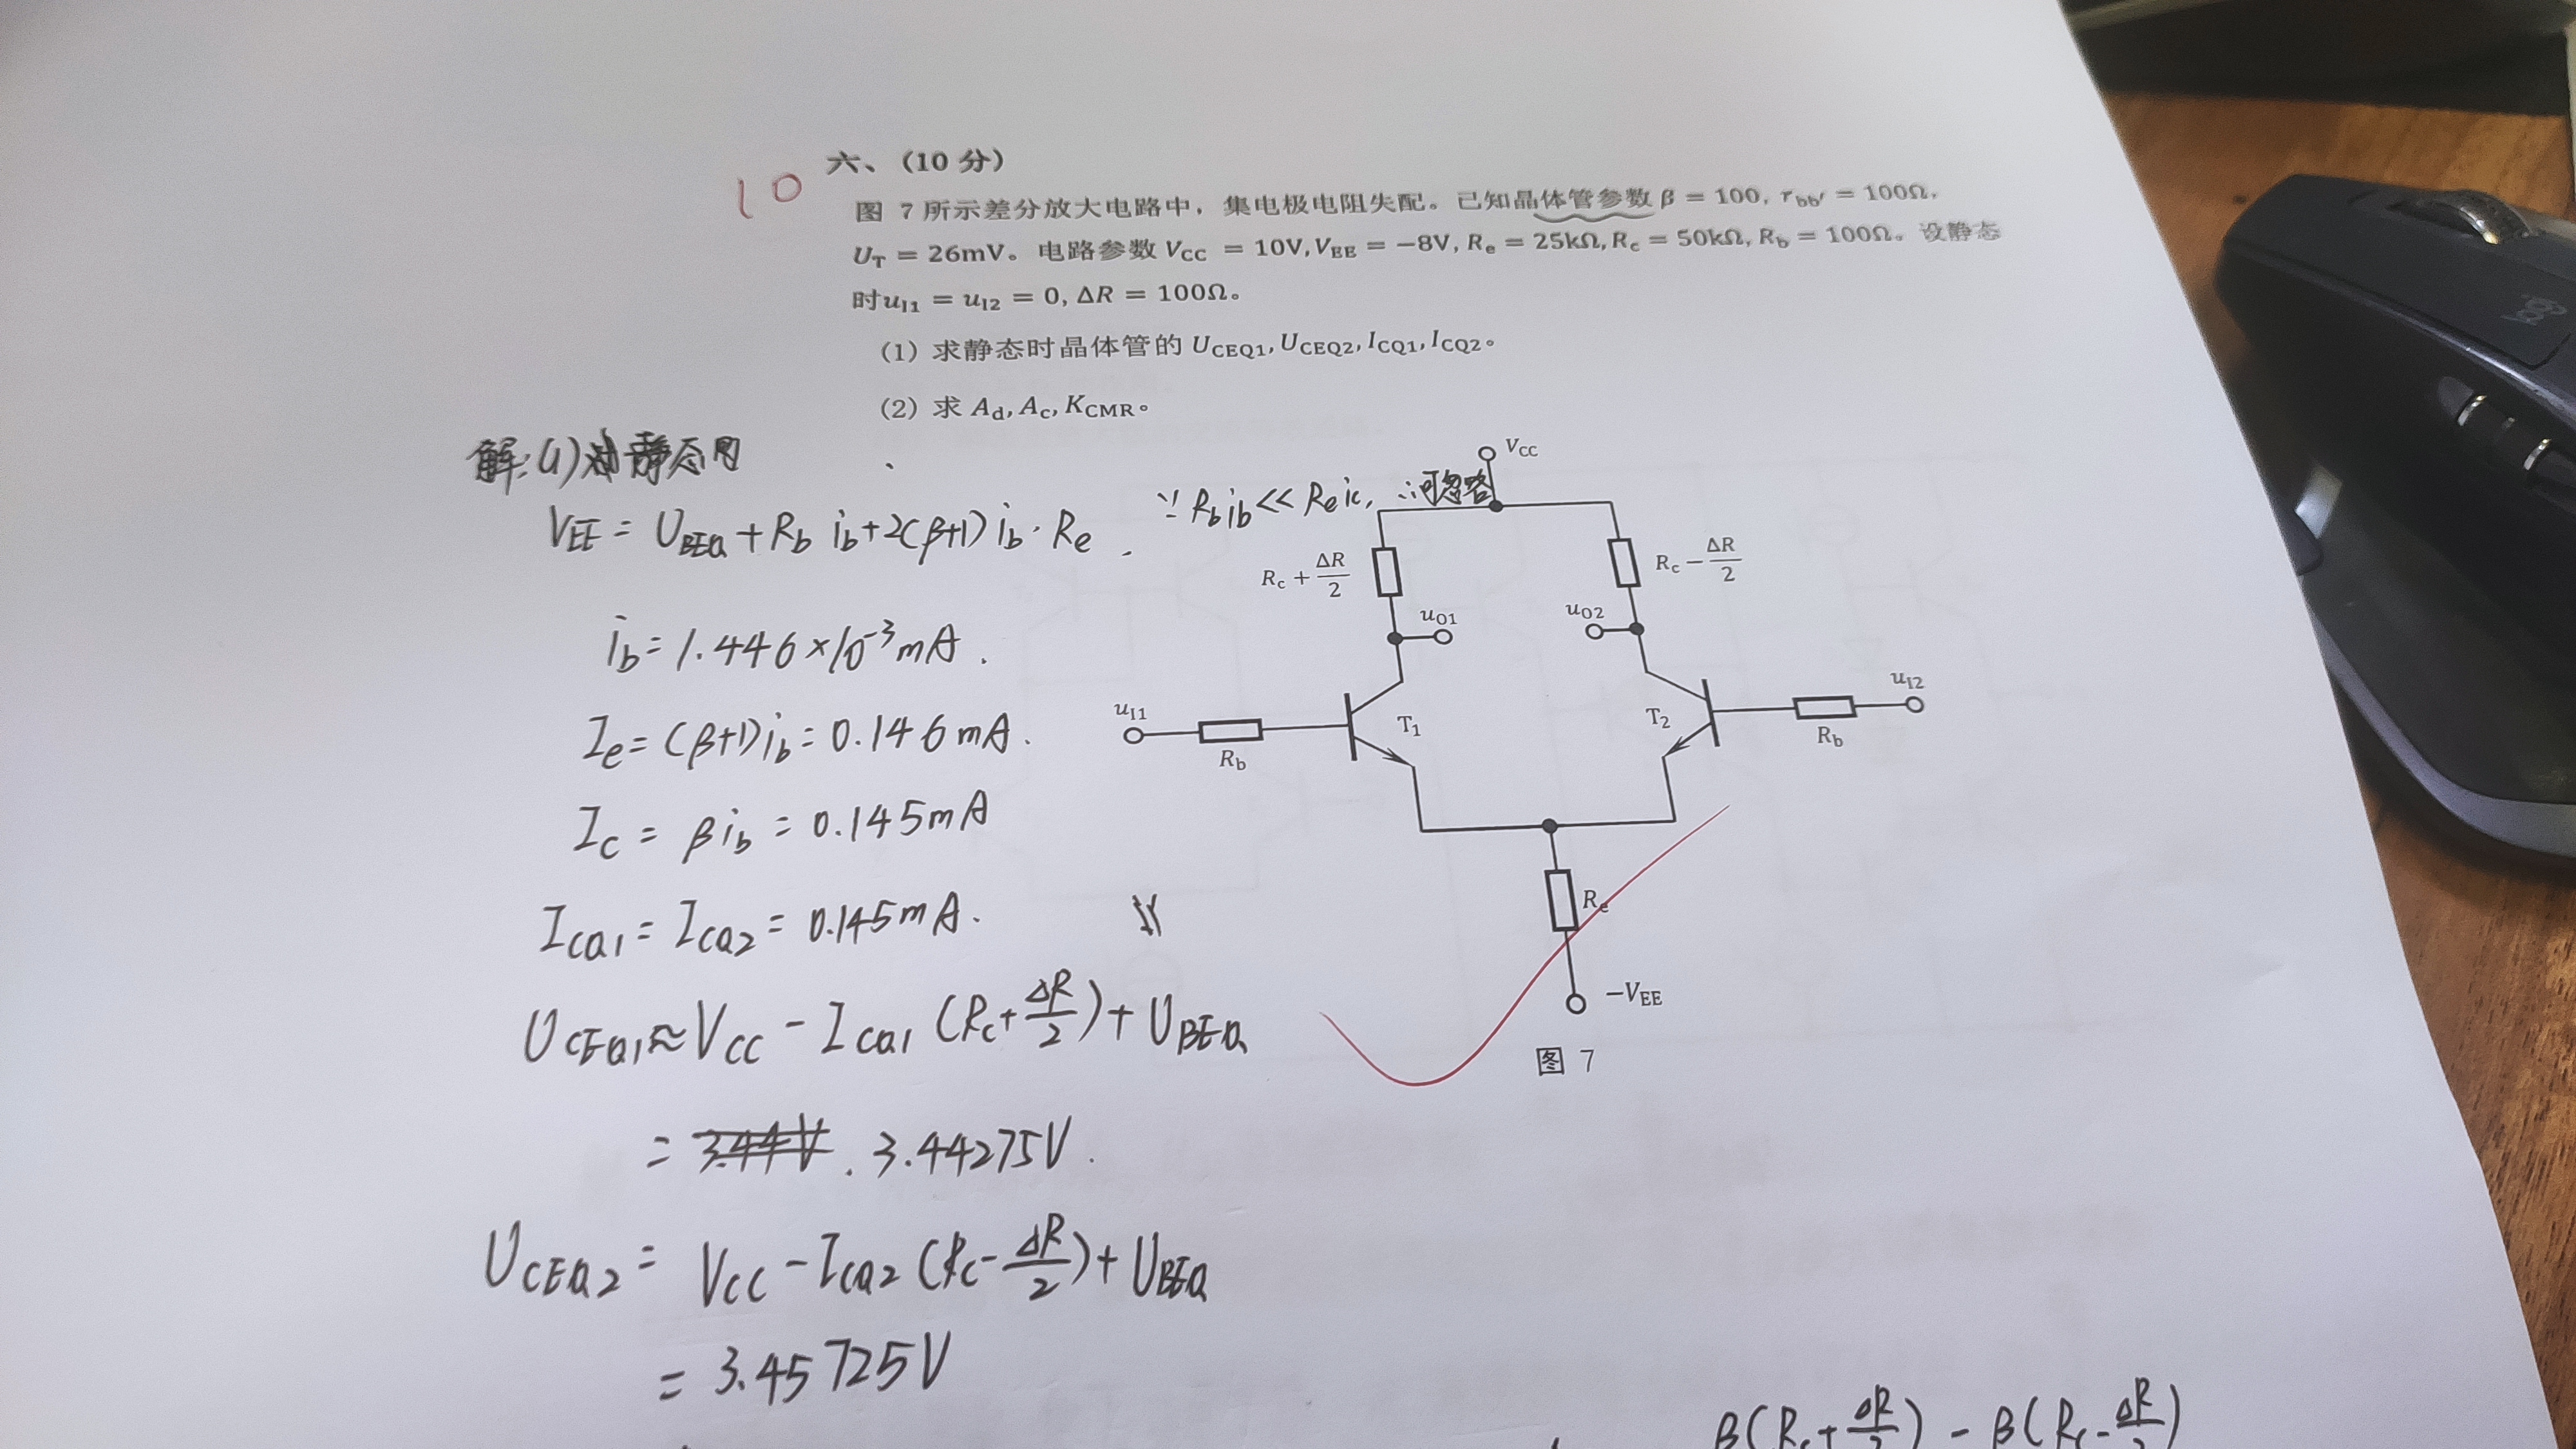 10
六、(10 分)
图 7 所示差分放大电路中，集电极电阻失配。已知晶体管参数 β = 100, r_bb′ = 100Ω,
U_T = 26mV。电路参数 V_CC = 10V, V_EE = −8V, R_e = 25kΩ, R_c = 50kΩ, R_b = 100Ω。设静态
时 u_I1 = u_I2 = 0, ΔR = 100Ω。
(1) 求静态时晶体管的 U_CEQ1, U_CEQ2, I_CQ1, I_CQ2。
(2) 求 A_d, A_c, K_CMR。
解:(1) 静态时
V_EE = U_BEQ + R_b i_b + 2(β+1) i_b · R_e . ∵ R_b i_b << R_e i_c, ∴可忽略
i_b = 1.446×10^-3 mA.
I_e = (β+1)i_b = 0.146mA.
I_c = β i_b = 0.145mA
I_CQ1 = I_CQ2 = 0.145mA.
U_CEQ1 ≈ V_CC - I_CQ1 (R_c + ΔR/2) + U_BEQ
= 3.44V . 3.44275V.
U_CEQ2 = V_CC - I_CQ2 (R_c - ΔR/2) + U_BEQ
= 3.45725V
β(R_c + ΔR/2) - β(R_c - ΔR/2)
V_CC
R_c + ΔR/2
R_c − ΔR/2
u_O1
u_O2
u_I1
R_b
T_1
T_2
R_b
u_I2
R_e
−V_EE
图 7
logi